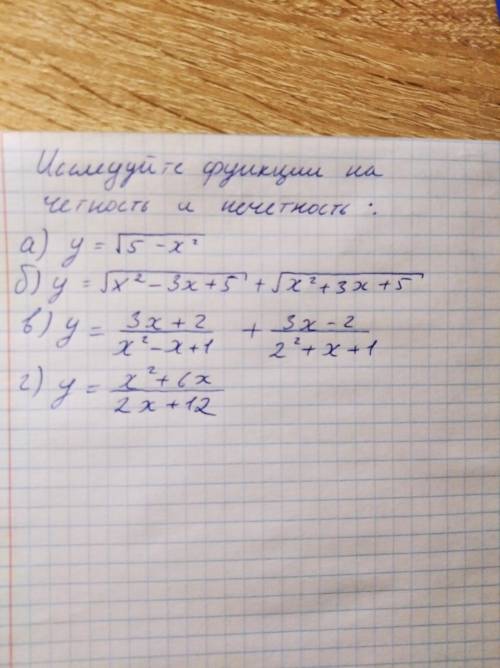 Исследуйте функции на
четность и нечетность:
а) y = √(5 - x²)
б) y = √(x² - 3x + 5) + √(x² + 3x + 5)
в) y = (3x + 2)/(x² - x + 1) + (3x - 2)/(2² + x + 1)
г) y = (x² + 6x)/(2x + 12)